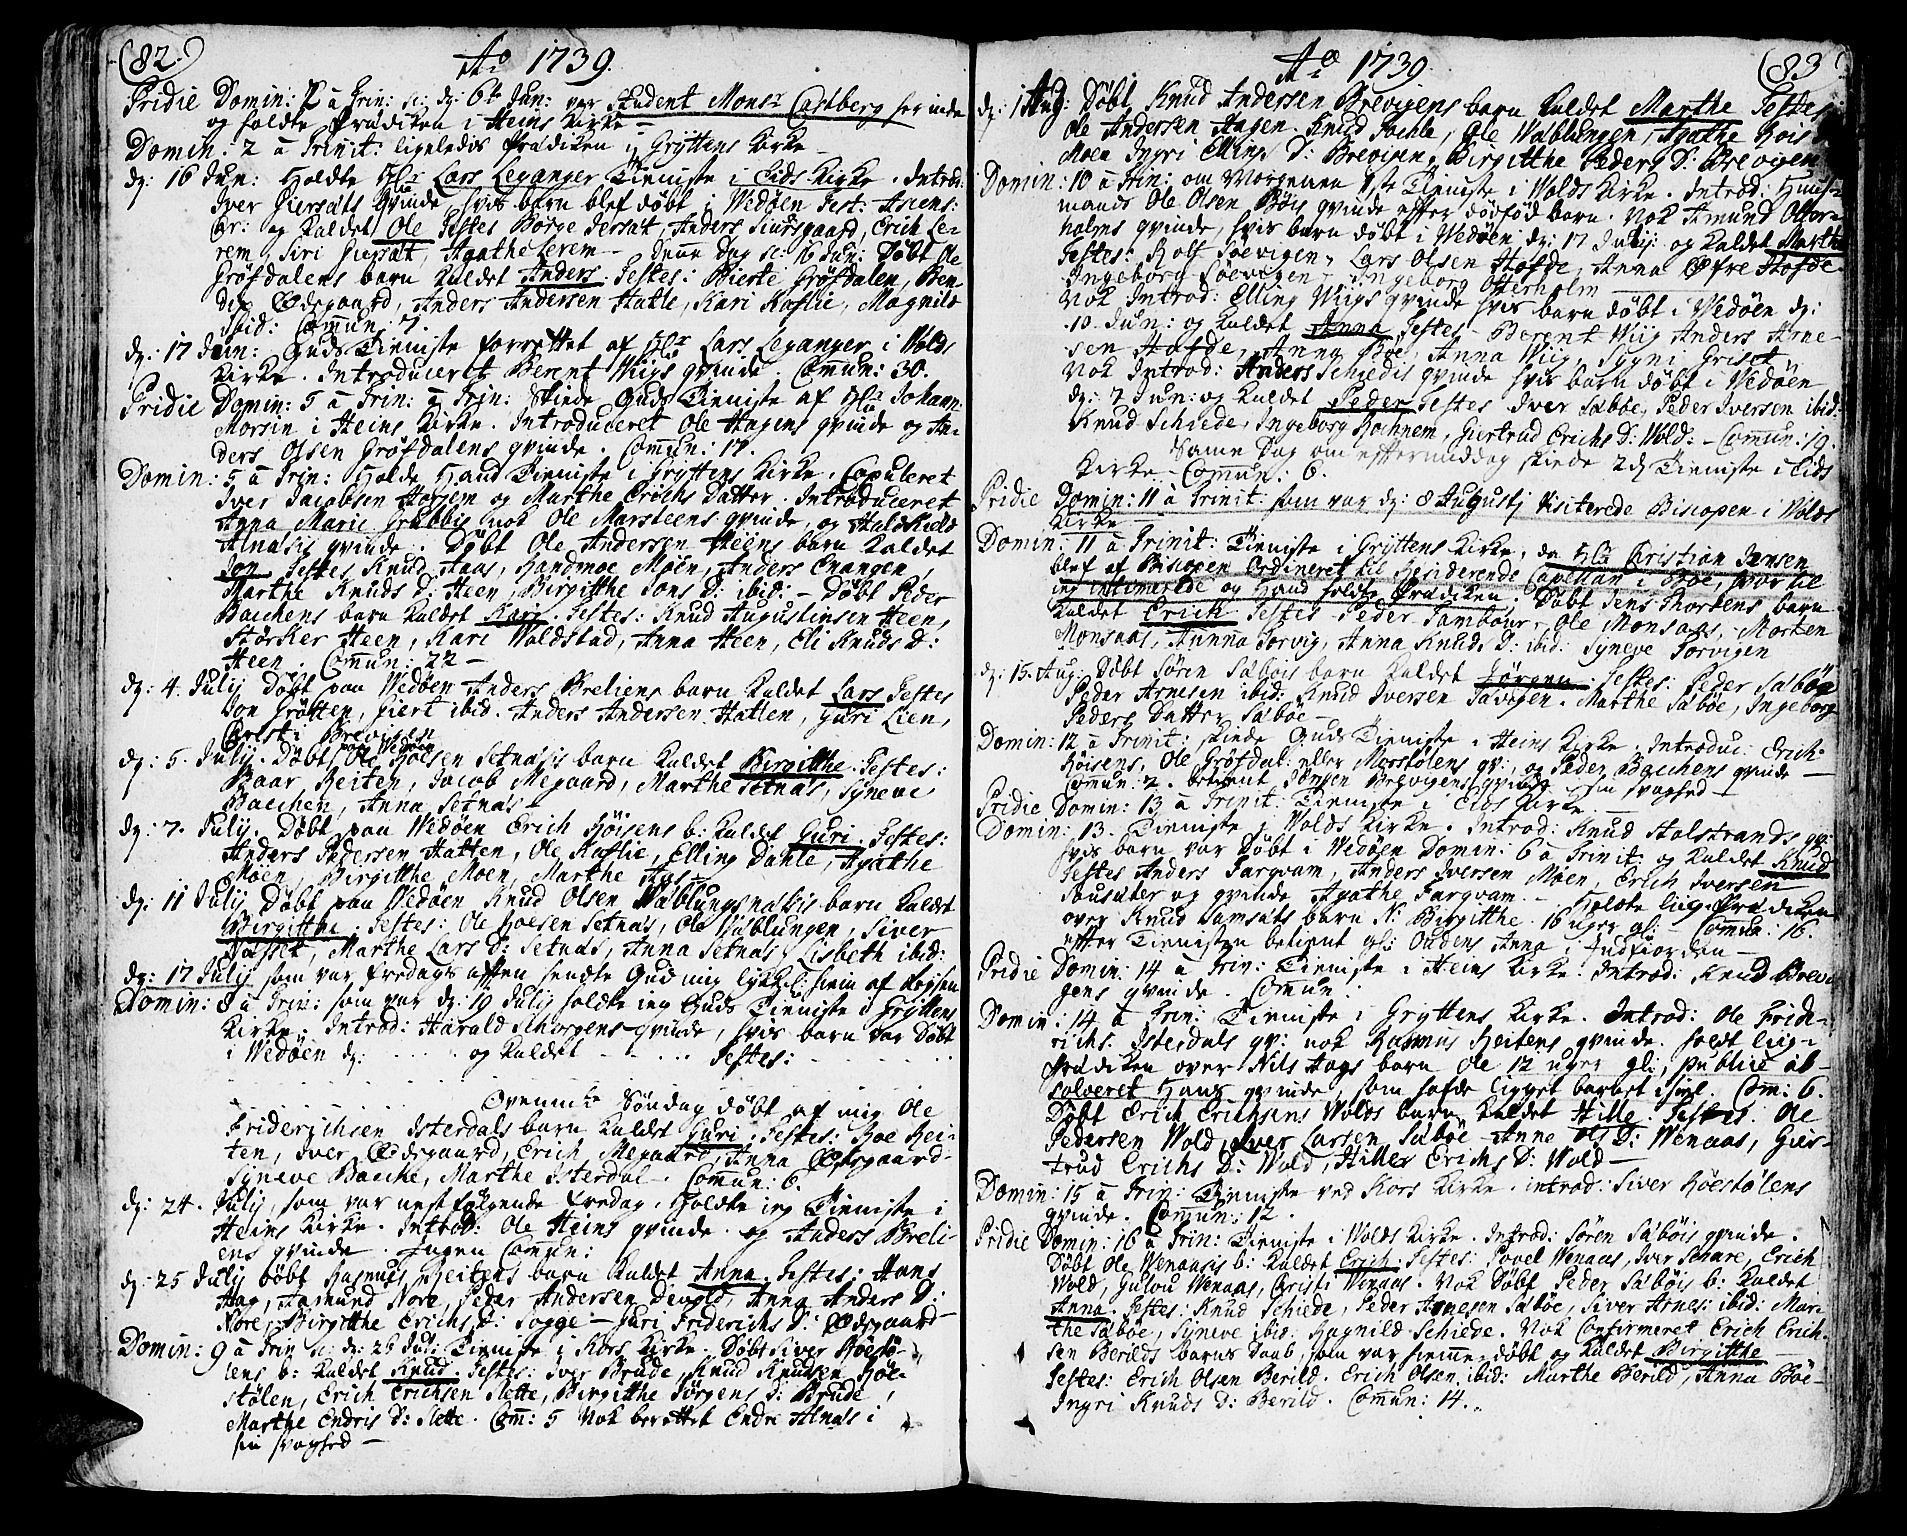 (82.)
Aº 1739.
Pridie Domin: 2 à Trin: sc: dg: 6te Jun: var Student Monsr Castberg her inde
og holdte Prædiken i Heins Kirke
Domin: 2 à Trinit: ligeledis Prædiken i Gryttens Kirke
dg: 16 Jun: Holdte Hr Lars Leganger Tieniste i Eids Kirke. Introd:
Iver Giersæts qvinde, hvis barn blef døbt i Wedøen Fest:
og kaldet Ole Testes Børge Jersæt, Anders Siursgaard, Erich Le-
rem, Siri Jersæt, Agathe Lerem - Denne Dag sc: 16 Jun: Døbt Ole
Grøfdalens barn kaldet Anders. Testes: Bierte Grøfdalen, Ben-
dix Ødegaard, Anders Andersen Hatle, Kari Kaflie, Magnild
ibid: Comun: 7.
dg: 17 Jun: Guds Tieniste forrettet af Hr Lars Leganger i Wolds
Kirke. Introduceret Berent Wiigs qvinde. Comun: 30.
Pridie Domin: 5 à Trin: Skiede Guds Tieniste af Hr Johann
Morsin i Heins Kirke. Introduceret Ole Hagens qvinde og An-
ders Olsen Grøfdalens qvinde. Comun: 17.
Domin: 5 à Trin: Holde Hand Tieniste i Gryttens Kirke. Copuleret
Iver Jacobsen Horjem og Marthe Erichs Datter. Introduceret
Anna Marie Grubbis nok Ole Marsteens qvinde, og Haldskild
Alnæsis qvinde. Døbt Ole Andersen Heens barn kaldet
Jon Testes Knud Aaas, Handmoe Møen, Anders Enangen,
Marthe Knuds D: Heen, Birgitthe Jons D: ibid: - Døbt Peder
Bacchens barn kaldet Kari. Testes: Knud Augustinsen Heen,
Størker Heen, Kari Woldstad, Anna Heen, Eli Knuds D:
Heen. Comun: 22 -
dg: 4. Julij Døbt paa Wedøen Anders Breliens barn kaldet Lars Testes
Jon Grøtten, Siert ibid. Anders Andersen Hatlen, Guri Lien,
Christi Brevigen
dg: 5. Julij. Døbt paa Wedøen Ole Hoesen Setnæsis barn kaldet Birgitthe. Testes:
Baar Reiten, Jacob Megaard, Marthe Setnæs, Syneve
Bacchen, Anna Setnæs
dg: 7. Julij. Døbt paa Wedøen Erich Høisens b: kaldet Guri. Testes:
Anders Pedersen Hatlen, Ole Kaflie, Elling Dahle, Agathe
Møen, Birgitthe Moen, Marthe Aas
dg: 11 Julij Døbt paa Wedøen Knud Olsen Wæblungsnæsis barn kaldet
Birgitthe. Testes: Ole Hoesen Setnæs, Ole Wæblungen, Siver
Næsset, Marthe Lars D: Setnæs, Anna Setnæs, Lisbeth ibid:
dg: 17 Julij som var fredags aften sendte Gud mig lykkel: hiem af Reysen
Domin: 8 à Trin: som var dg: 19 Julij holdte ieg Guds Tieniste i Gryttens
Kirke. Introd: Harald Schorgens qvinde, hvis barn var Døbt
i Wedøen dg: ..... og kaldet ..... Testes:
Søndag døbt af mig Ole
Friderichsen Isterdals barn kaldet Guri. Testes: Roe Rei-
ten, Iver Ødegaard, Erich Megaard, Anna Ødegaard
Syneve Bacche, Marthe Isterdal. Comun: 6.
dg: 24. Julij, som var nestfølgende fredag, holdte ieg Tieniste i
Heins Kirke. Introd: Ole Heins qvinde. og Anders Breli-
ens qvinde. Ingen Comun:
dg: 25 Julij døbt Rasmus Reitens barn kaldet Anna. Testes: Hans
Hag, Aamund Nore, Peder Andersen Devold, Anna Anders D:
Nore, Birgitthe Erichs D: Sogge - Guri Friderichs D: Ødegaard
Domin: 9 à Trin sc: dg: 26 Jul: Tieniste i Kors Kirke. Døbt Siver Høestø-
lens b: kaldet Knud Testes: Iver Brude, Knud Knudsen Høe-
stølen, Erich Erichsen Slette, Birgitthe Jørgens D: Brude,
Marthe Endris D: Slette. Com: 5 Nok berettet Endre Alnæs i
sin svaghed -
(83)
Aº 1739.
dg: 1 Aug: Døbt Knud Andersen Brevigens barn kaldet Marthe Testes
Ole Andersen Hagen. Knud Sæhle, Ole Wæblungen, Agathe
Moen Ingri Ellings D: Brevigen, Birgitthe Peders D: Brevigen
Domin: 10 à Trin: om Morgenen Tieniste i Wolds Kirke. Introd: Huus-
mands Ole Olsen Bøis qvinde efter dødfød barn. Nok Amund Otter-
holms qvinde, hvis barn døbt i Wedøen dg: 17 Julij: og kaldet Marthe
Testes: Rolf Søevigen, Lars Olsen Hofde, Anna Øfre Hofde.
Ingeborg Søevigen - Ingeborg Otterholm
Nok Introd: Elling Wiigs qvinde hvis barn døbt i Wedøen dg:
10. Jun: og kaldet Anna Testes - Berent Wiig Anders Arne-
sen Hofde, Anna Bøe, Anna Wiig, Sygni Griset
Nok Introd: Anders Schiedis qvinde hvis barn døbt i Wedøen
dg: 7 Jun: og kaldet Peder Testes Iver Sæbøe, Peder Iversen ibid:
Knud Schiede, Ingeborg Kochnem, Giertrud Erichs D: Wold: - Comun: 19.
Samme Dag om eftermiddag skiede 2d Tieniste i Eids
Kirke - Comun: 6.
Pridie Domin: 11 à Trinit: som var dg: 8 Augustj Visiterede Bispen i Wolds
Kirke
Domin: 11 à Trinit: Tieniste i Gryttens Kirke, da Hr Christian Jensen
blef af Bispen Ordineret til Residerende Capellan i Bøe, hvortil
ieg intimerede og Hand holdte Prædiken. Døbt Jens Thordens barn
kaldet Erich Testes - Peder Tambour, Ole Monsaas, Morten
Monsaas, Annna Torvig, Anna Knuds D: ibid: Syneve Torvigen
dg: 15. Aug: Døbt Søren Sæbøis barn kaldet Jørgen: Testes: Peder Sæbøe
Peder Arnesen ibid: Knud Iversen Savigen. Marthe Sæbøe, Ingeborg
Peders Datter Sæbøe -
Domin: 12 à Trinit: skiede Guds Tieniste i Heins Kirke. Introduc: Erich
Høisens, Ole Grøfdal: eller Marstølens qv:, og Peder Bacchens qvinde
Comun: 2. betient Jørgen Brevigens qvinde i sin svaghed -
Pridie Domin: 13 à Trinit: Tieniste i Eids Kirke.
Domin: 13. Tieniste i Wolds Kirke. Introd: Knud Stalstrands qv:
hvis barn var Døbt i Wedøen Domin: 6 à Trinit: og kaldet Knud
Testes Anders Fargvam, Anders Iversen Møen, Erich Iversen
og qvinde Agathe Fargvam. - Holdte liig-Prædiken
over Knud Samsæts barn N: Birgitthe. 16 uger gl: - Comun: 16.
efter Tienisten betient gl: Oudens Anna i Indfiorden -
Pridie Domin: 14 à Trin: Tieniste i Heins Kirke: Introd: Knud Brevi-
gens qvinde. Comun:
Domin: 14 à Trin: Tieniste i Gryttens Kirke. Introd: Ole Frid-
richs. Isterdals qv: nok Rasmus Reitens qvinde. holdt liig-
Prædiken over Nils Hags barn Ole 12 uger gl:, publice ab-
solveret Hans qvinde, som hafde ligget barnet ihiel. Com: 6.
Døbt Erich Erichsens Wolds barn kaldet Hille. Testes: Ole
Pedersen Wold, Iver Larsen Sæbøe - Anne Ols D: Wenaas, Gier-
trud Erichs D: Wold, Hille Erichs D: Wold -
Domin: 15 à Trin: Tieniste ved Kors Kirke. introd: Siver Høestølens
qvinde. Comun: 12.
Pridie Domin: 16 à Trin: Tieniste i Wolds Kirke. Introd: Søren Sæbøis qvinde.
Døbt Ole Wenaasis b: kaldet Erich. Testes: Povel Wenaas, Iver Schare, Erich
Wold, Gulou Wenaas, Christi Wenaas. Nok Døbt Peder Sæbøis b: kaldet
Anna. Testes: Knud Schiede, Peder Arnesen Sæbøe, Siver Arnes: ibid: Mar-
the Sæbøe, Syneve ibid: Ragnild Schiede. Nok Confirmeret Erich Erich-
sen Berilds barns Daab, som var hiemme-døbt og kaldet Birgitthe -
Testes: Erich Olsen Berild. Erich Olsen ibid: Marthe Berild, Anna Bøe -
Ingri Knuds D: Berild. Comun: 14.